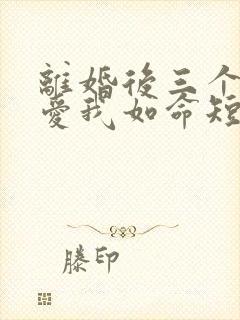 離婚後三个
愛我如命短
滕印